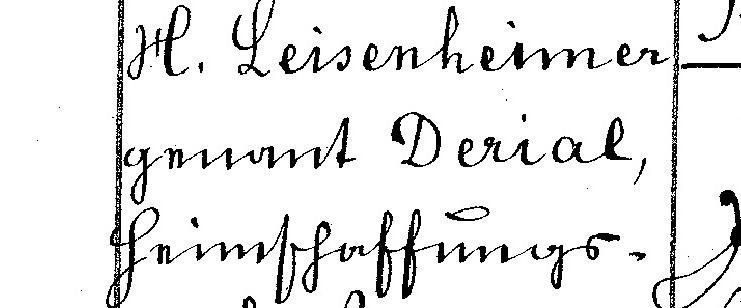 H. Leisenheimer
genant Derial,
Heimschaffungs-